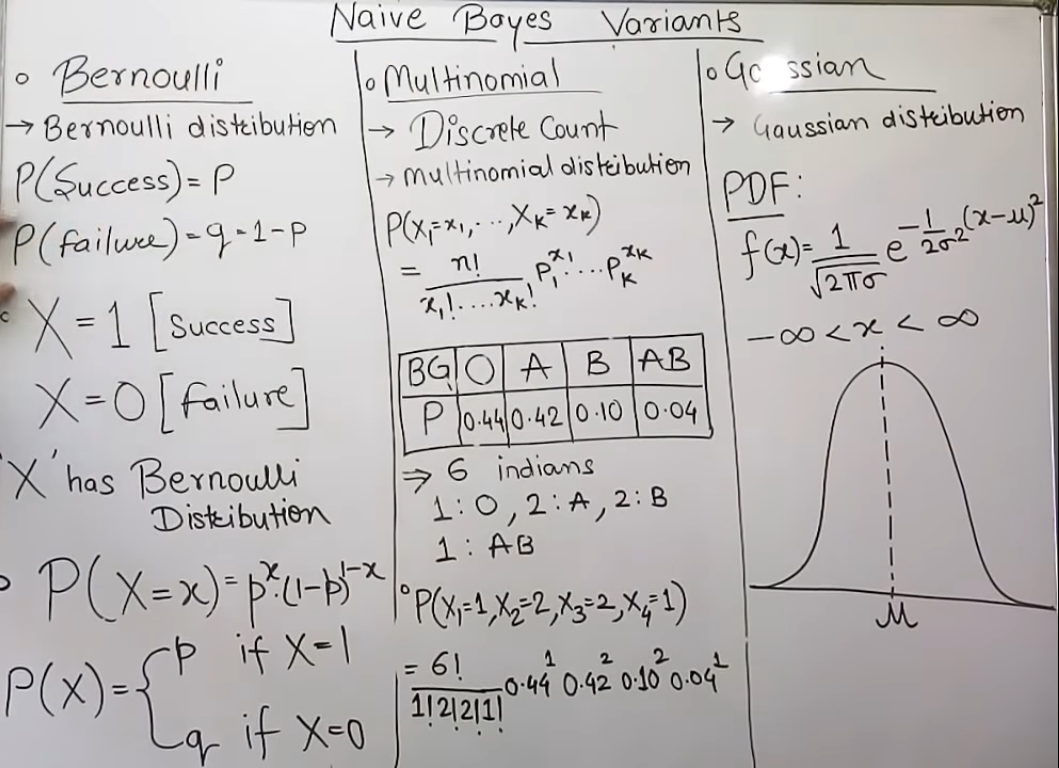 Naive Bayes Variants
○ Bernoulli
→ Bernoulli distribution
P(Success)=P
P(failure)=q=1-p
X=1 [Success]
X=0 [failure]
'X' has Bernoulli
Distribution
○ P(X=x)=pˣ.(1-p)¹⁻ˣ
P(X)={p if X=1
q if X=0
○ Multinomial
→ Discrete Count
→ multinomial distribution
P(X₁=x₁,...,X_K=x_K)
= n!/(x₁!....x_K!) P₁^x₁....P_K^x_K
BG O A B AB
P 0.44 0.42 0.10 0.04
⇒ 6 indians
1:O, 2:A, 2:B
1: AB
○ P(X₁=1,X₂=2,X₃=2,X₄=1)
= 6!/(1!2!2!1!) 0.44¹ 0.42² 0.10² 0.04¹
○ Ga ssian
→ Gaussian distribution
PDF:
f(x)= 1/√2πσ e^(-1/2σ² (x-μ)²)
-∞<x<∞
μ